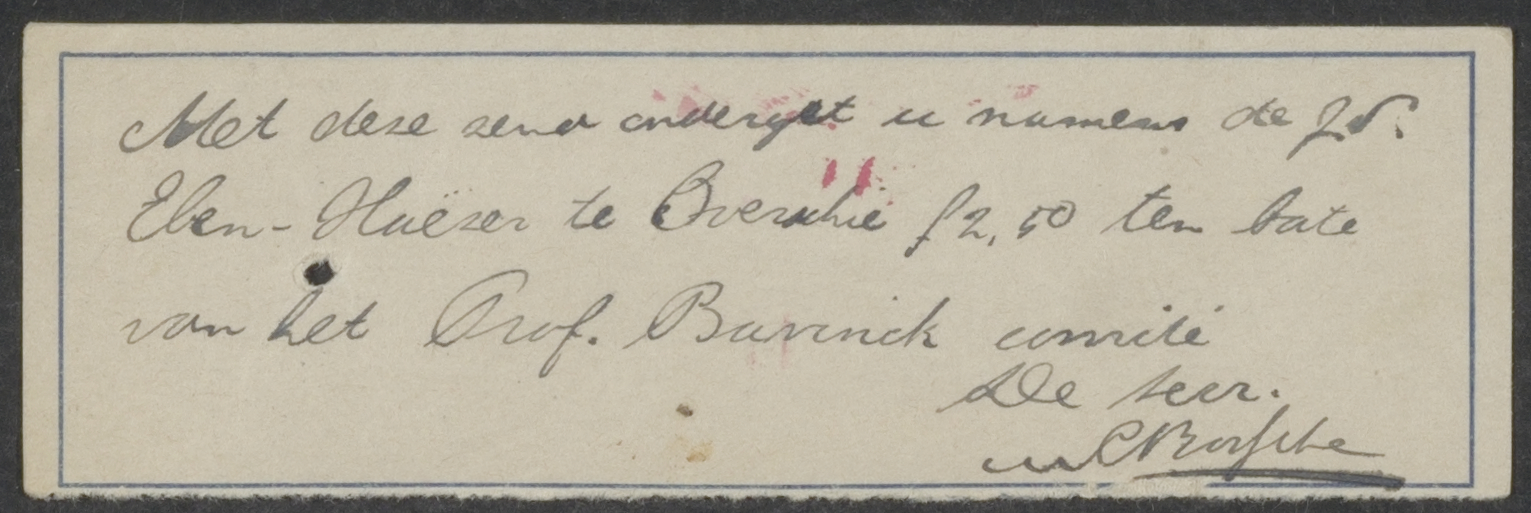 Met deze zend ondergget u namens de J.V.
Eben-Haëzer te Overschie f 2,50 ten bate
van het Prof. Bavinck comité
De secr.